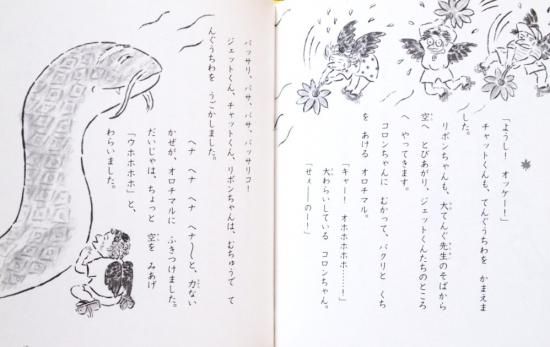 「ようし！　オッケー！」
チャットくんも、てんぐうちわを　かまえま
した。
リボンちゃんも、大てんぐ先生のそばから
空へ　とびあがり、ジェットくんたちのところ
へ　やってきます。
コロンちゃんに　むかって、パクリと　くち
を　あける　オロチマル。
「キャー！　オホホホホホ……！」
大わらいしている　コロンちゃん。
「せぇーのー！」
バッサリ、バサ、バサ、バッサリコ！
ジェットくん、チャットくん、リボンちゃんは、むちゅうで　て
んぐうちわを　うごかしました。
ヘナ　ヘナ　ヘナ　ヘナ〜と、力ない
かぜが、オロチマルに　ふきつけました。
だいじゃは、ちょっと　空を　みあげ
「ウホホホホ」と、
わらいました。